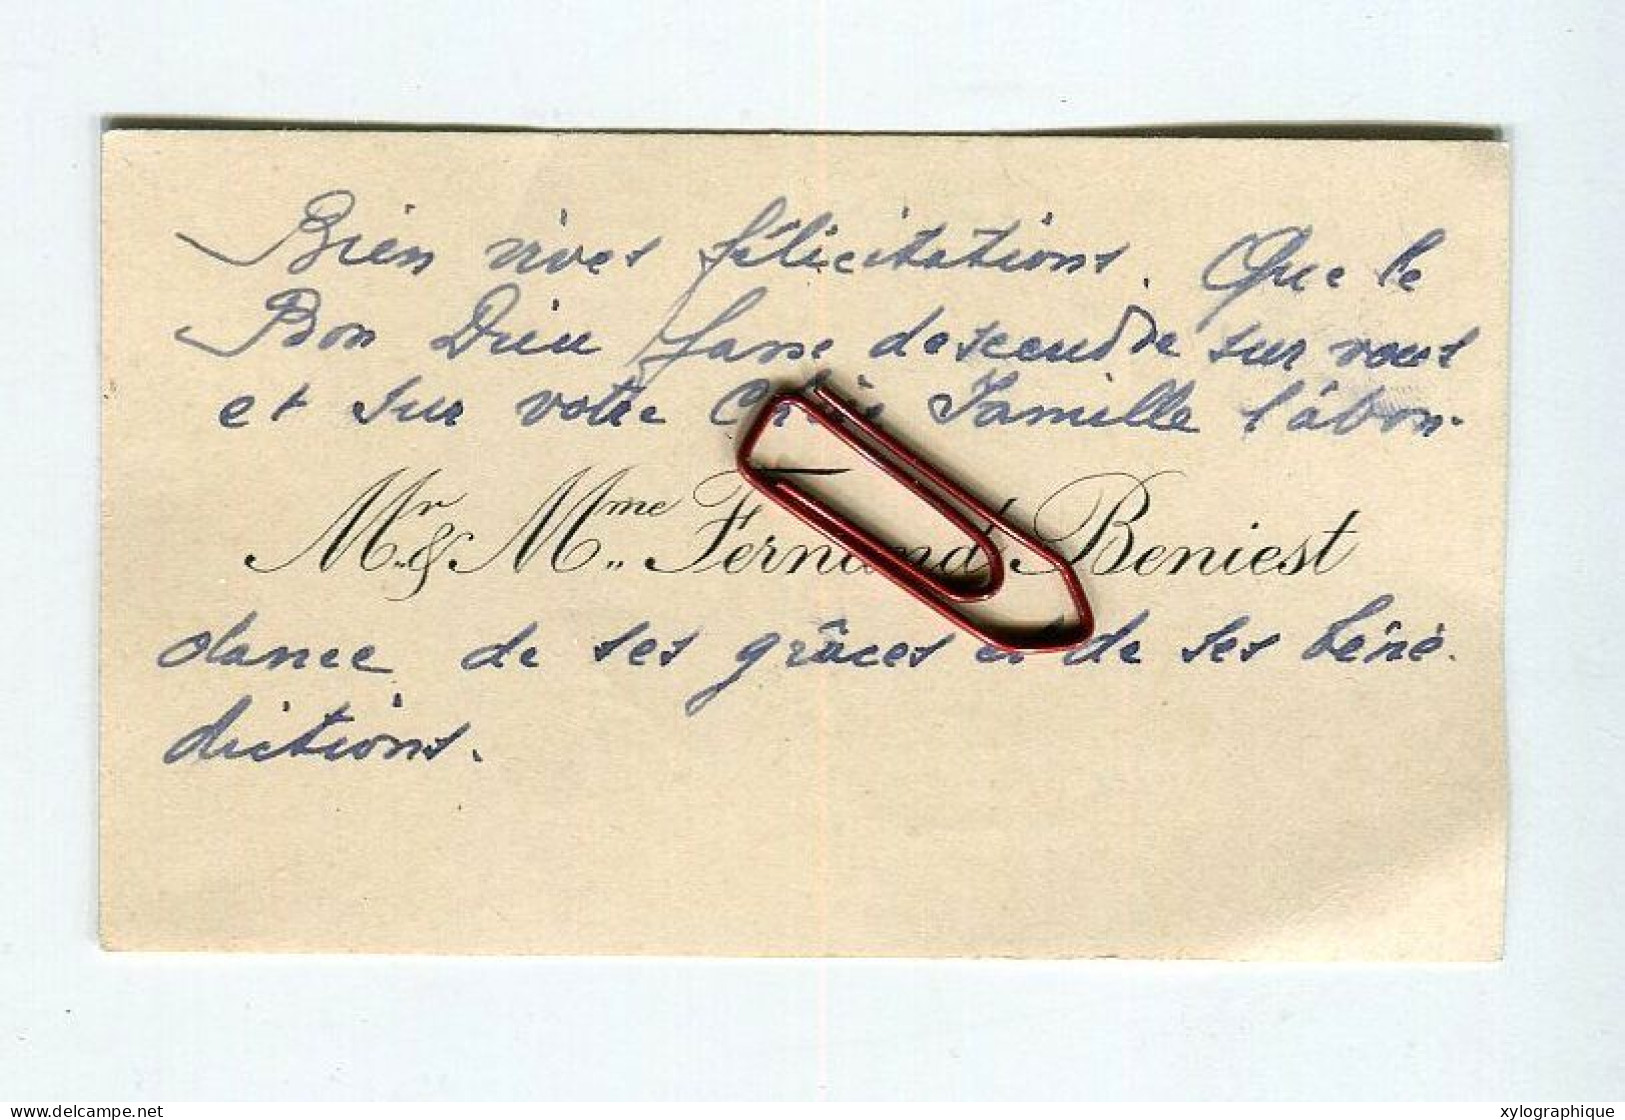 Bien vives félicitations. Que le
Bon Dieu fasse descendre sur vous
et sur votre Chère Famille l'abon-
Mr. & Mme. Fernand Beniest
dance de ses grâces et de ses béné-
dictions.
www.delcampe.net
xylographique